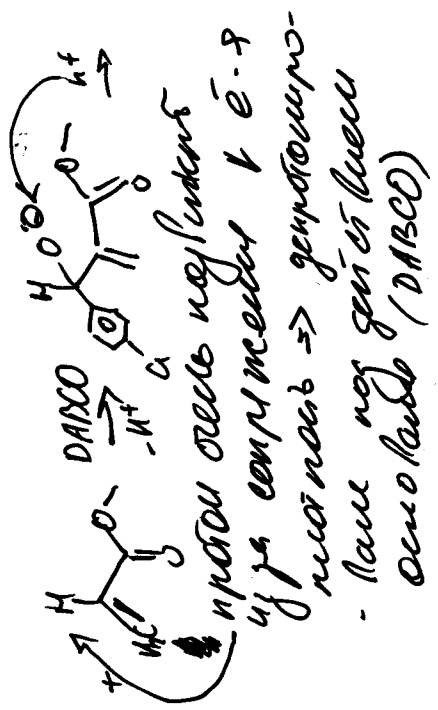 DABCO
-H⁺
H
O
O
H₂C
+
H
O⊖
O
O
Cl
h⁺
протон очень подвижный
из за сопряжения и ē-я
плотность => депротониро-
- вание под действием
основания (DABCO)